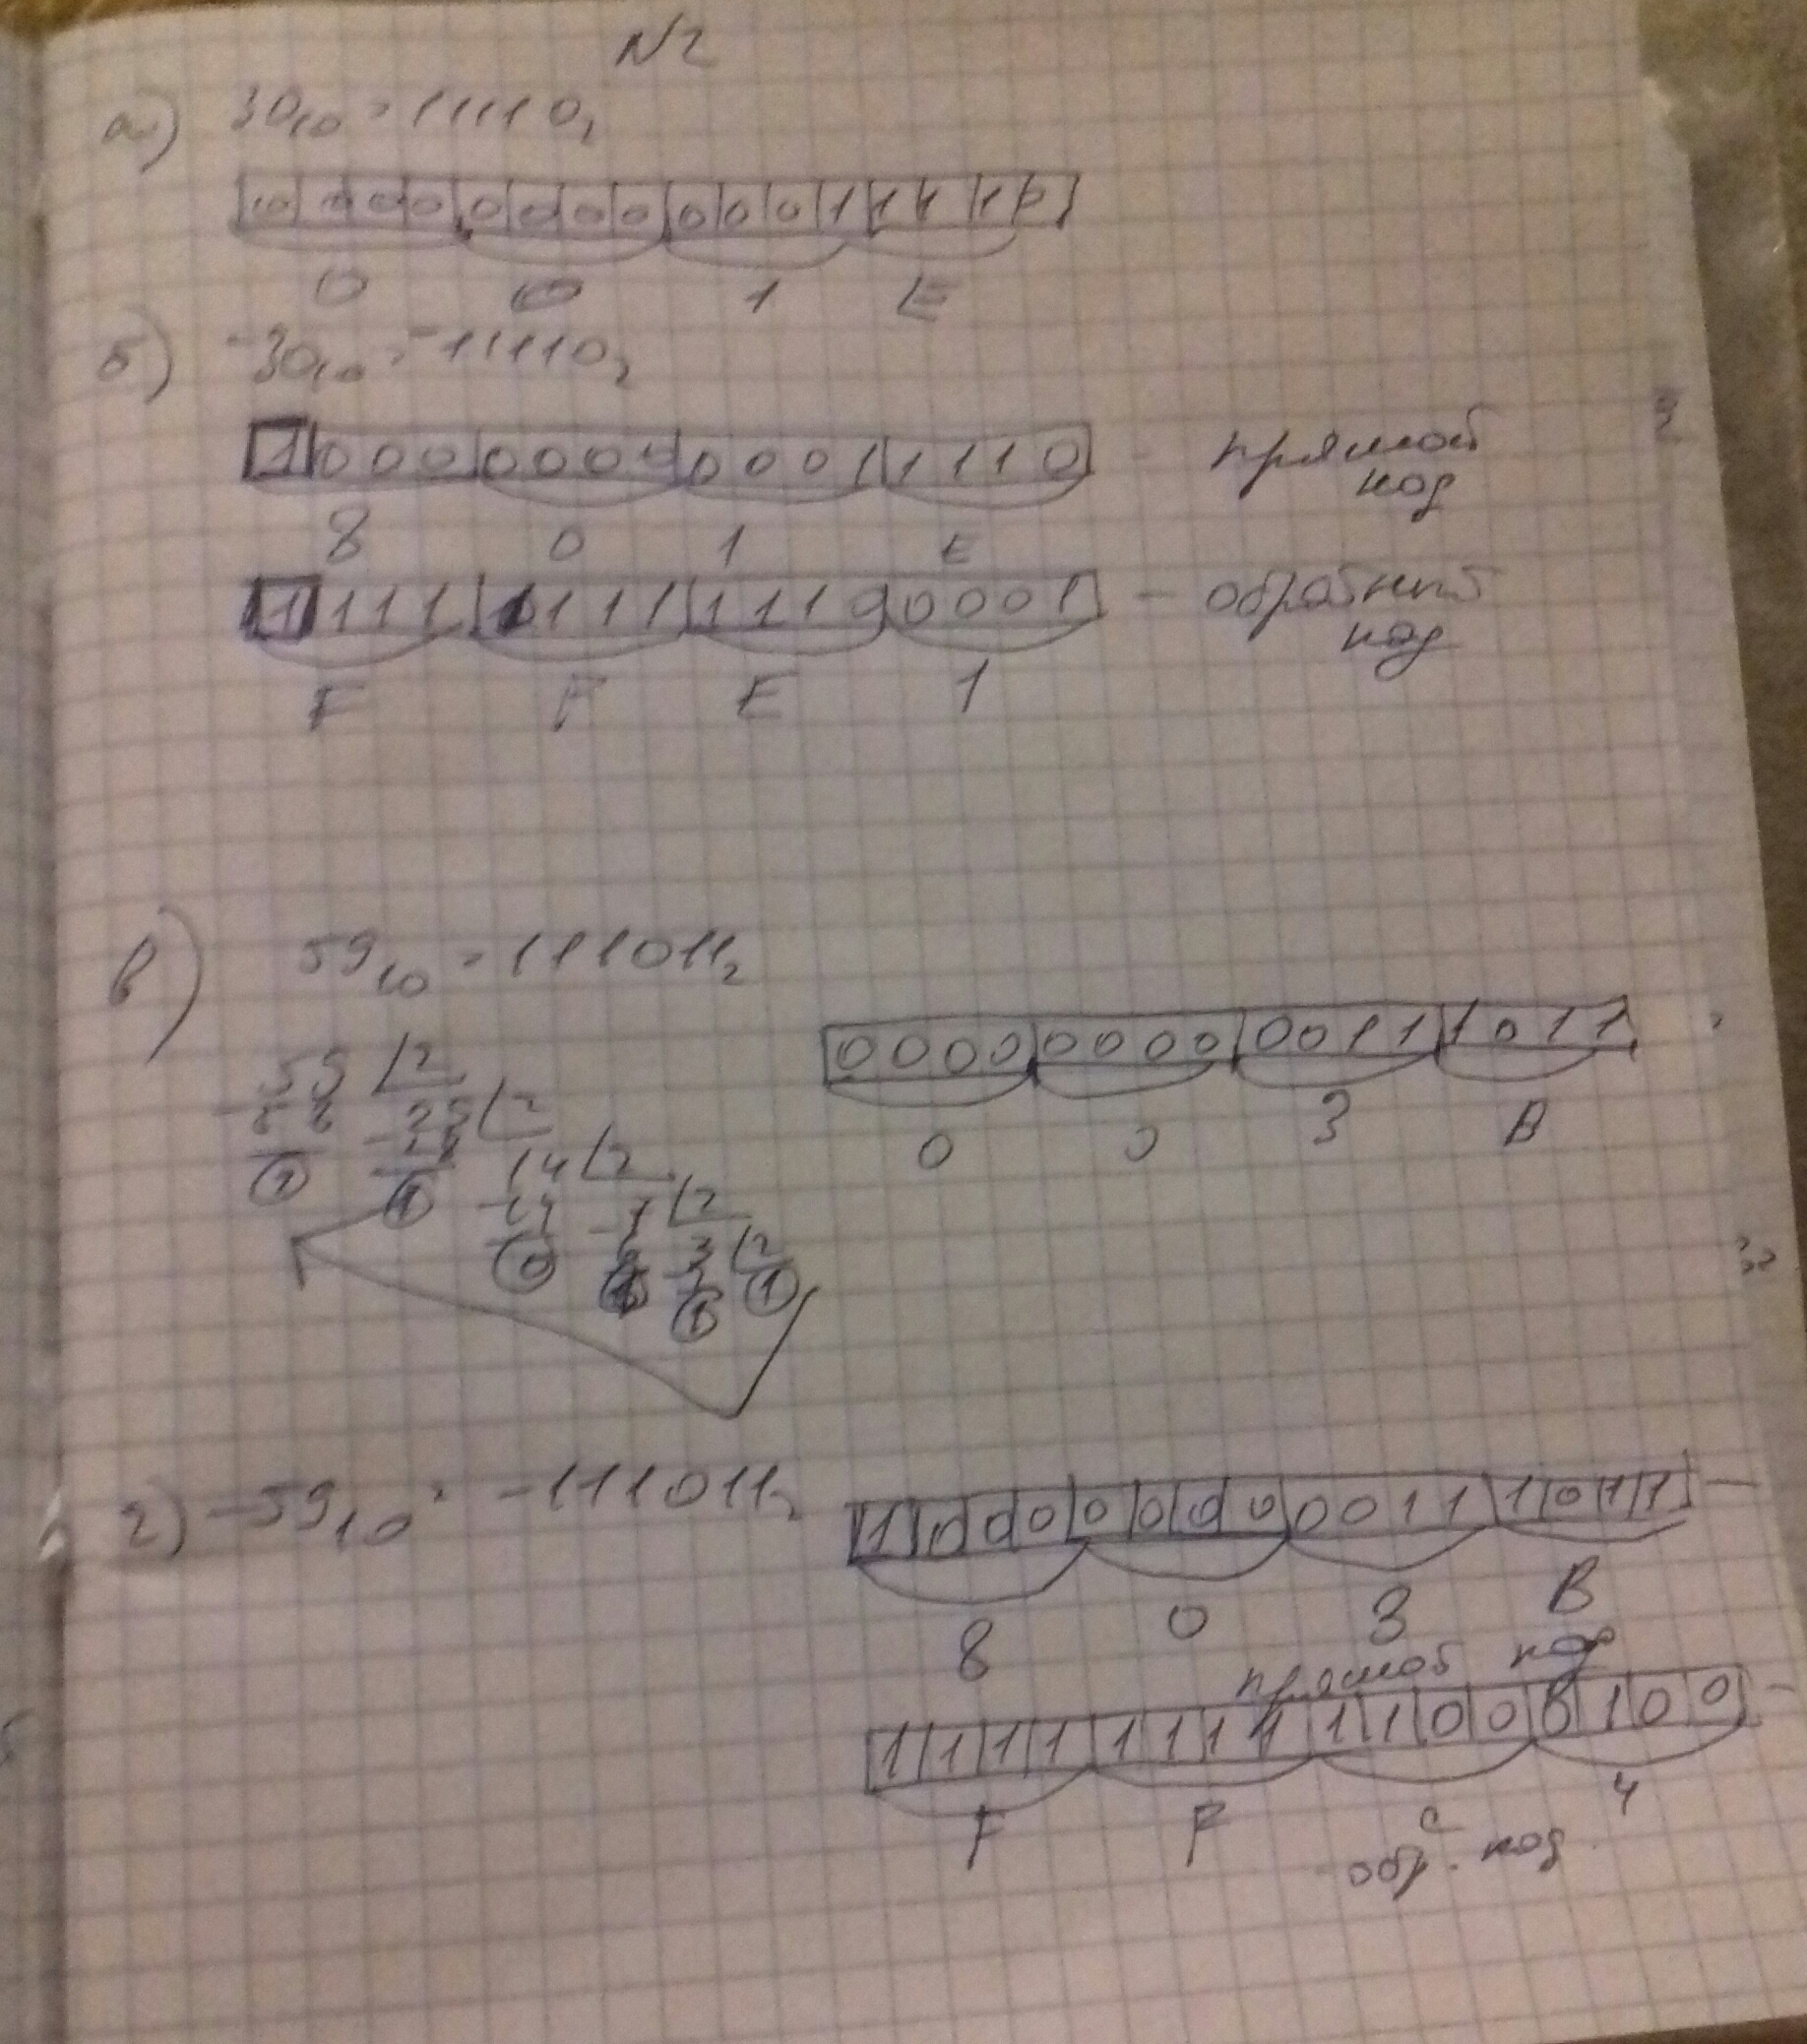 N2
а) 30₁₀ = 11110₂
0 0 0 0 0 0 0 0 0 0 0 1 1 1 1 0
0 0 1 E
б) -30₁₀ = -11110₂
1 0 0 0 0 0 0 0 0 0 0 1 1 1 1 0 - прямой код
8 0 1 E
1 1 1 1 1 1 1 1 1 1 1 0 0 0 0 1 - обратный код
F F E 1
в) 59₁₀ = 111011₂
0 0 0 0 0 0 0 0 0 0 1 1 1 0 1 1
0 0 3 B
59 2
58 29 2
1 28 14 2
1 14 7 2
0 3 2
1 1 1
г) -59₁₀ = -111011₂
1 0 0 0 0 0 0 0 0 0 1 1 1 0 1 1 -
8 0 3 B
прямой код
1 1 1 1 1 1 1 1 1 1 0 0 0 1 0 0 -
F F C 4
обр. код